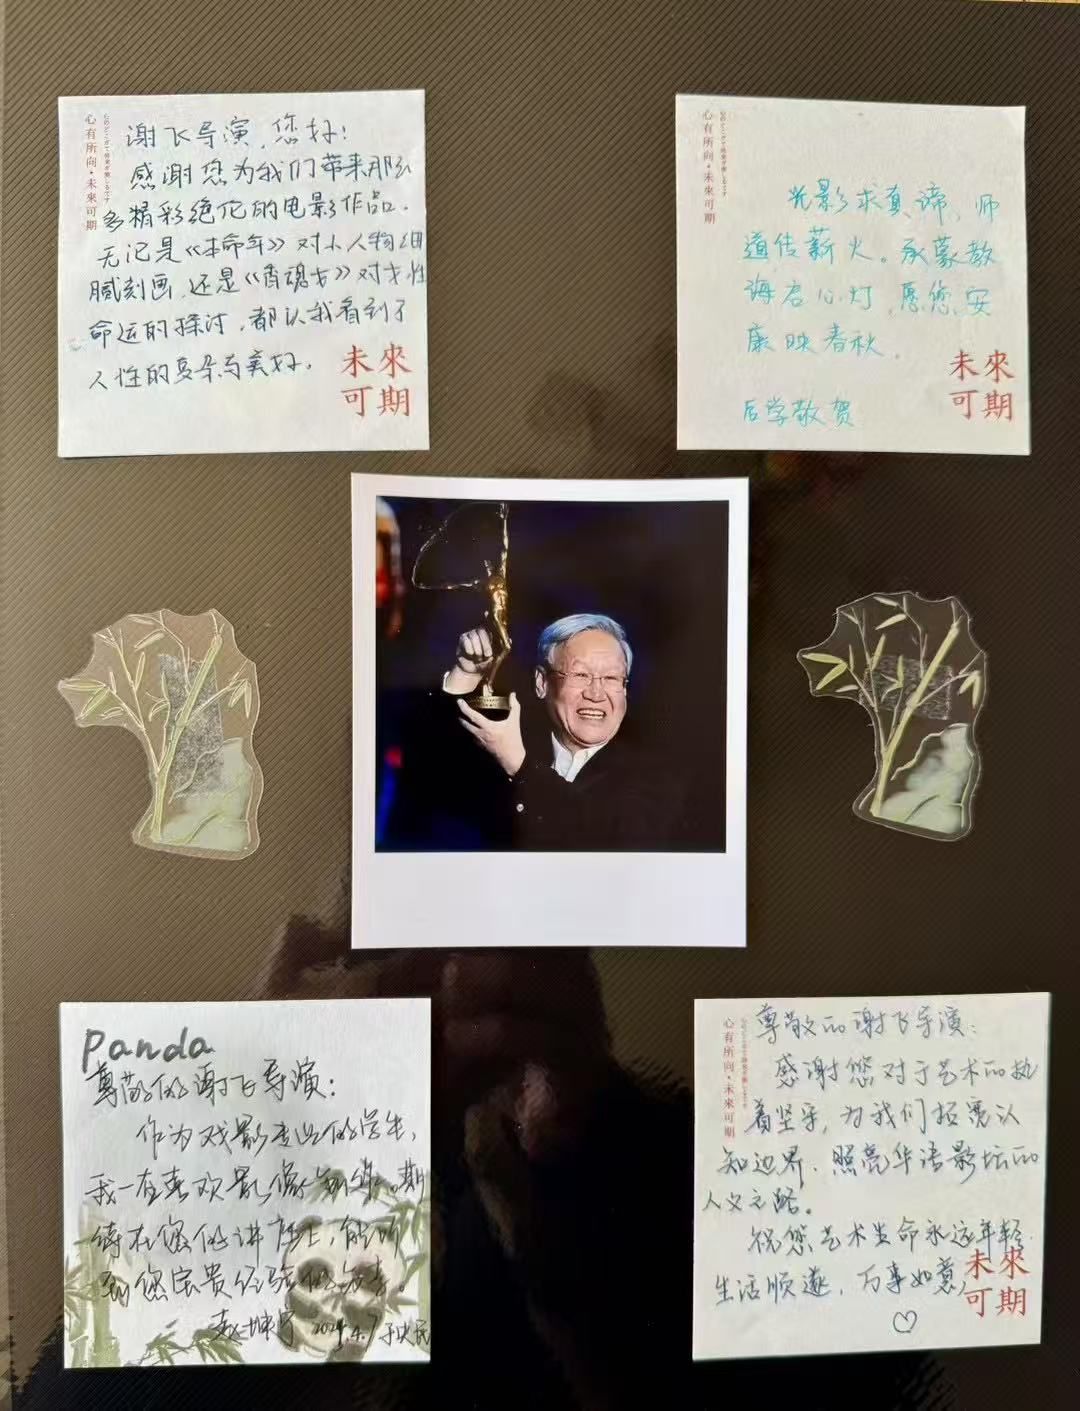 心有所向·未來可期
谢飞导演，您好！
感谢您为我们带来那么
多精彩绝伦的电影作品．
无论是《本命年》对小人物细
腻刻画，还是《香魂女》对女性
命运的探讨，都让我看到了
人性的复杂与美好．
未來
可期
心有所向·未來可期
光影求真谛，师
道传薪火。承蒙教
诲启心灯，愿您安
康映春秋．
后学敬贺
未來
可期
Panda
尊敬的谢飞导演：
作为戏影专业的学生，
我一直喜欢影像。期
待在您的讲座上，能听
到您宝贵经验的分享。
2024.4.7
心有所向·未來可期
尊敬的谢飞导演：
感谢您对于艺术的执
着坚守，为我们拓宽认
知边界．照亮华语影坛的
人文之路。
祝您艺术生命永远年轻．
生活顺遂，万事如意，
♡
未來
可期